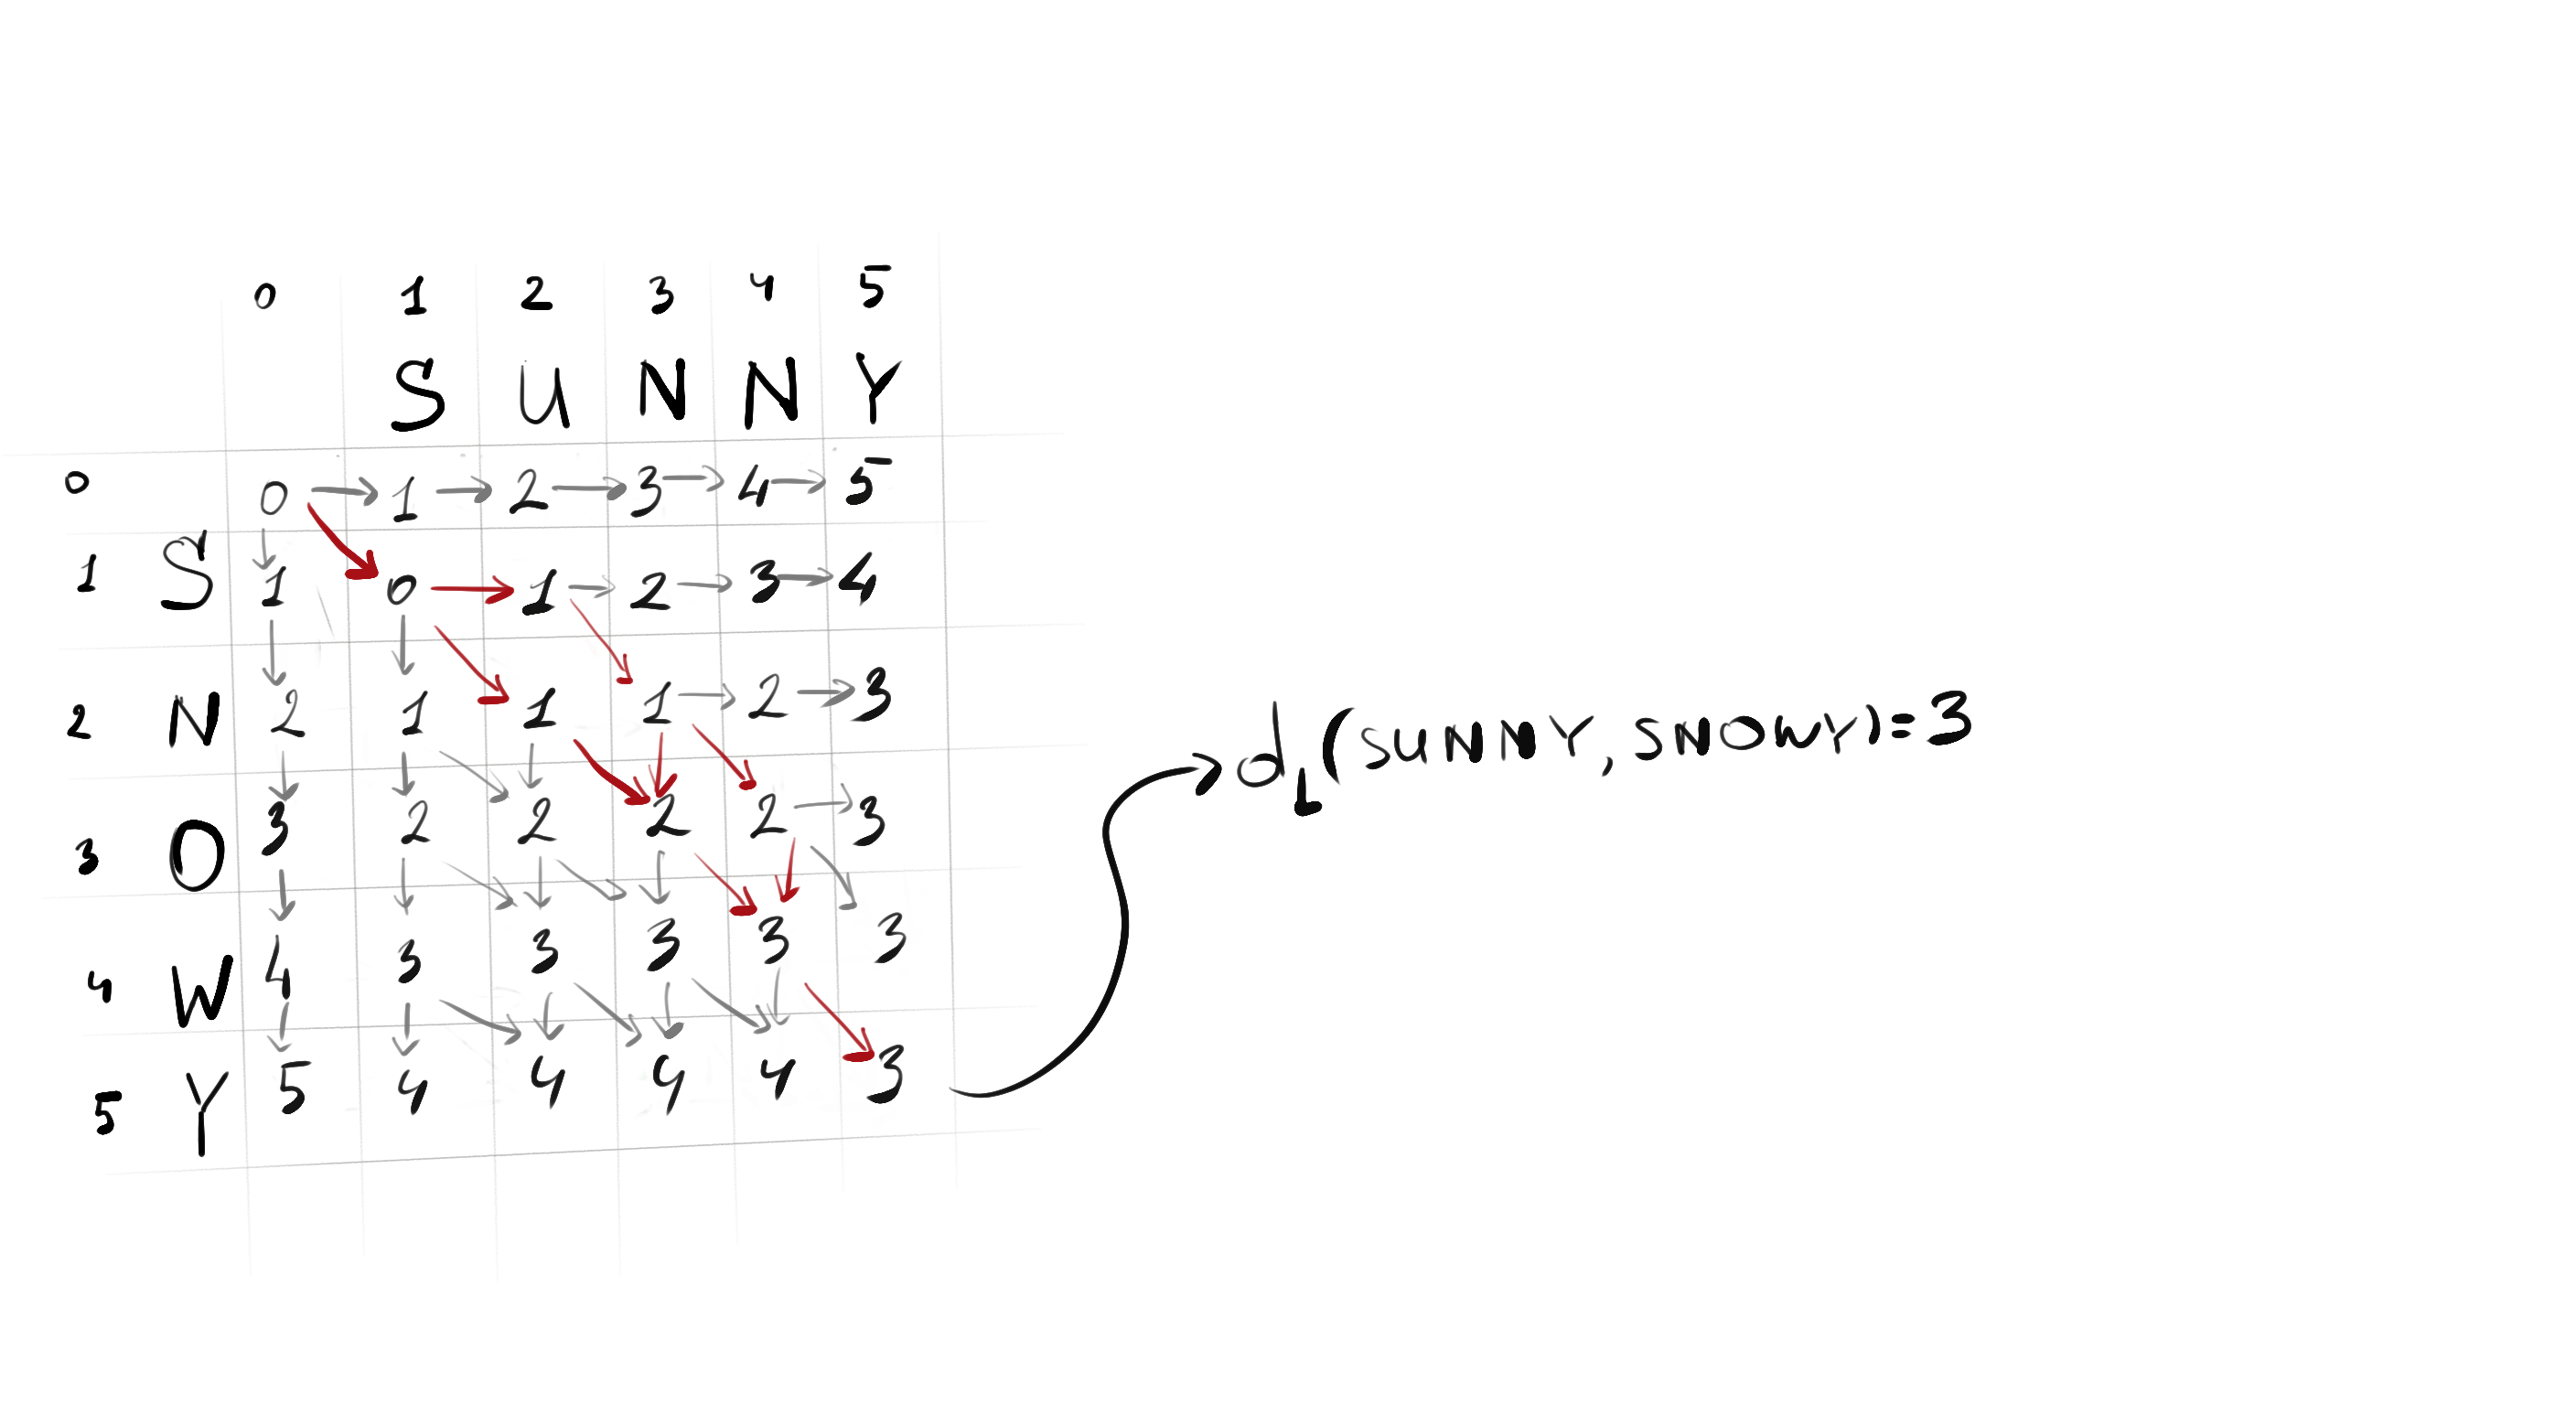 0 1 2 3 4 5
S U N N Y
0 0 → 1 → 2 → 3 → 4 → 5
1 S 1 0 → 1 → 2 → 3 → 4
2 N 2 1 1 1 → 2 → 3
3 O 3 2 2 2 2 → 3
4 W 4 3 3 3 3 3
5 Y 5 4 4 4 4 3
d_L(SUNNY, SNOWY)=3